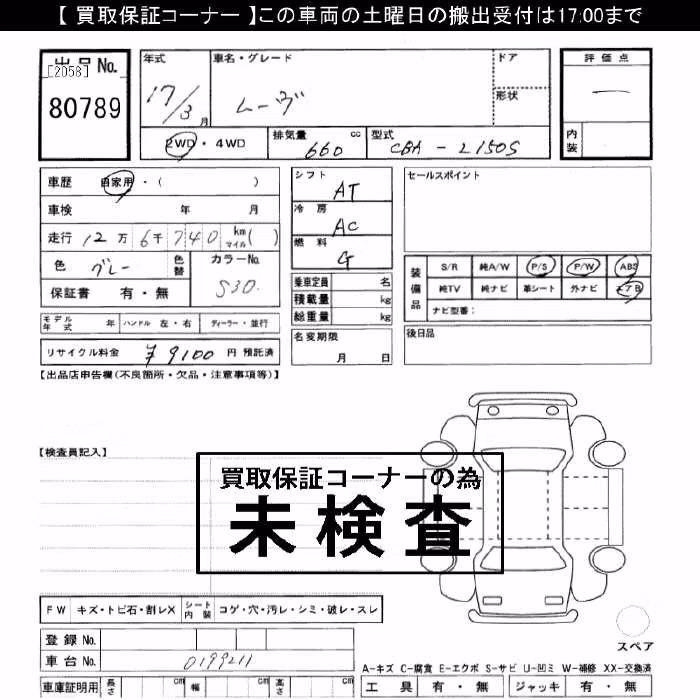 【 買取保証コーナー 】この車両の土曜日の搬出受付は17:00まで
出品 No. 年式 車名・グレード ドア 評価点
[2058]
80789 17/3 月 ムーヴ 形状 —
2WD・4WD 排気量 660 cc 型式 CBA-L150S 内装
車歴 自家用・( ) シフト AT セールスポイント
車検 年 月 冷房 AC
走行 12万 6千 740 km マイル ( ) 燃料 G
色 グレー 色替 カラーNo. S30. 装備品 S/R 純A/W P/S P/W ABS
保証書 有・無 乗車定員 名 純TV 純ナビ 革シート 外ナビ エアB
積載量 kg ナビ型番:
モデル年式 年 ハンドル 左・右 ディーラー・並行 総重量 kg 後日品
リサイクル料金 ¥9100 円 預託済 名変期限 月 日
【出品店申告欄(不良箇所・欠品・注意事項等)】
【検査員記入】
買取保証コーナーの為
未検査
FW キズ・トビ石・割レX シート内装 コゲ・穴・汚レ・シミ・破レ・スレ
登録 No. スペア
車台 No. 0199211
A-キズ C-腐食 E-エクボ S-サビ U-凹ミ W-補修 XX-交換済
車庫証明用 長さ cm 幅 cm 高さ cm 工具 有・無 ジャッキ 有・無